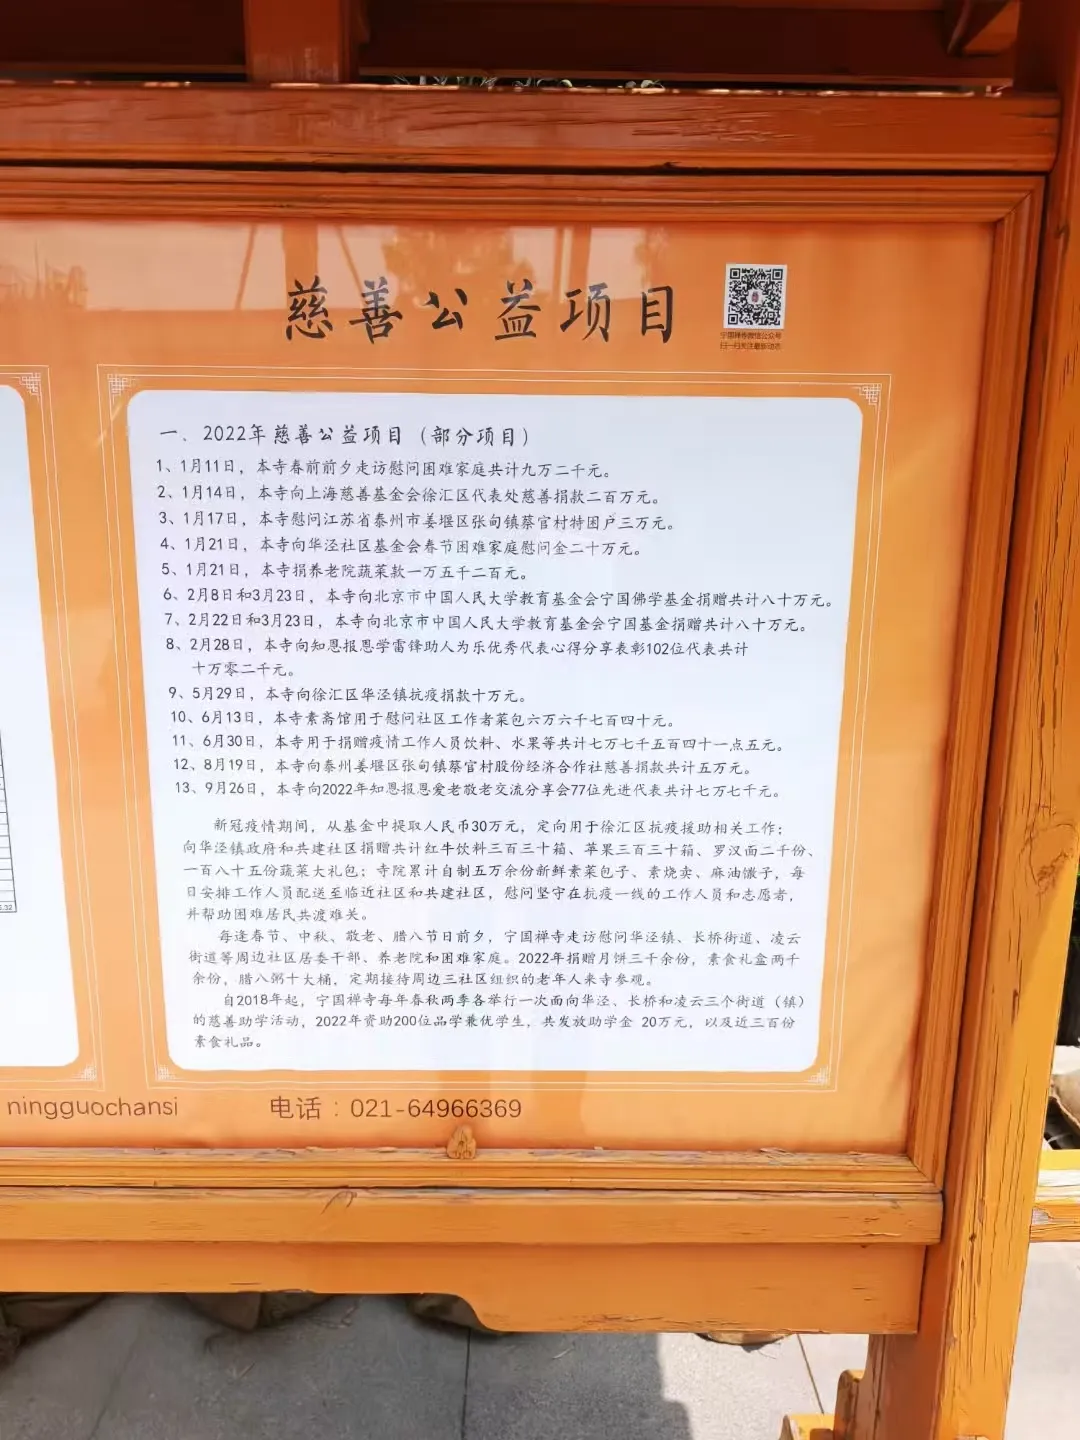 慈善公益项目
宁国禅寺微信公众号
扫一扫关注最新动态
一. 2022年慈善公益项目（部分项目）
1、1月11日，本寺春前前夕走访慰问困难家庭共计九万二千元。
2、1月14日，本寺向上海慈善基金会徐汇区代表处慈善捐款二百万元。
3、1月17日，本寺慰问江苏省泰州市姜堰区张甸镇蔡官村特困户三万元。
4、1月21日，本寺向华泾社区基金会春节困难家庭慰问金二十万元。
5、1月21日，本寺捐养老院蔬菜款一万五千二百元。
6、2月8日和3月23日，本寺向北京市中国人民大学教育基金会宁国佛学基金捐赠共计八十万元。
7、2月22日和3月23日，本寺向北京市中国人民大学教育基金会宁国基金捐赠共计八十万元。
8、2月28日，本寺向知恩报恩学雷锋助人为乐优秀代表心得分享表彰102位代表共计
十万零二千元。
9、5月29日，本寺向徐汇区华泾镇抗疫捐款十万元。
10、6月13日，本寺素斋馆用于慰问社区工作者菜包六万六千七百四十元。
11、6月30日，本寺用于捐赠疫情工作人员饮料、水果等共计七万七千五百四十一点五元。
12、8月19日，本寺向泰州姜堰区张甸镇蔡官村股份经济合作社慈善捐款共计五万元。
13、9月26日，本寺向2022年知恩报恩爱老敬老交流分享会77位先进代表共计七万七千元。
新冠疫情期间，从基金中提取人民币30万元，定向用于徐汇区抗疫援助相关工作；
向华泾镇政府和共建社区捐赠共计红牛饮料三百三十箱、苹果三百三十箱、罗汉面二千份、
一百八十五份蔬菜大礼包；寺院累计自制五万余份新鲜素菜包子、素烧卖、麻油馓子，每
日安排工作人员配送至临近社区和共建社区，慰问坚守在抗疫一线的工作人员和志愿者，
并帮助困难居民共渡难关。
每逢春节、中秋、敬老、腊八节日前夕，宁国禅寺走访慰问华泾镇、长桥街道、凌云
街道等周边社区居委干部、养老院和困难家庭。2022年捐赠月饼三千余份，素食礼盒两千
余份，腊八粥十大桶，定期接待周边三社区组织的老年人来寺参观。
自2018年起，宁国禅寺每年春秋两季各举行一次面向华泾、长桥和凌云三个街道（镇）
的慈善助学活动，2022年资助200位品学兼优学生，共发放助学金 20万元，以及近三百份
素食礼品。
ningguochansi 电话：021-64966369